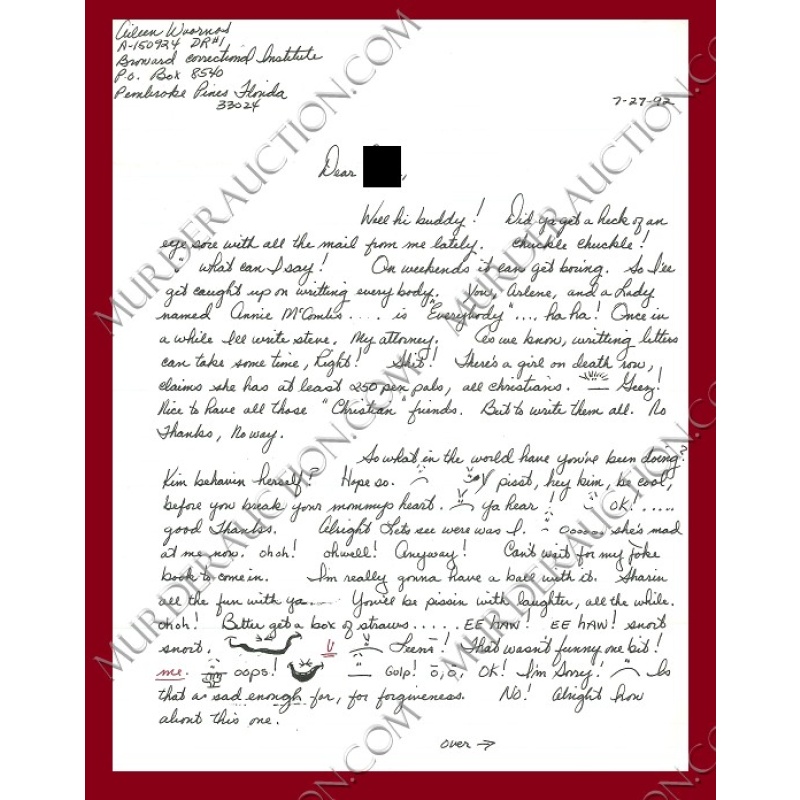 Aileen Wuornos
A-150924 DR#1
Broward correctional Institute
P.O. Box 8540
Pembroke Pines Florida
33024
7-27-92
Dear
Well hi buddy! Did ya get a heck of an
eye sore with all the mail from me lately. chuckle chuckle!
what can I say! On weekends it can get boring. So I'll
get caught up on writting every body. You, Arlene, and a Lady
named Annie McCombs .... is "Everybody".... ha ha! Once in
a while I'll write steve. My attorney. As we know, writting letters
can take some time, Right! Shit! There's a girl on death row,
claims she has at least 250 pen pals, all christians. Geez!
Nice to have all those "Christian" friends. But to write them all. No
Thanks, No way.
So what in the world have you've been doing?
Kim behavin herself? Hope so. pisst, hey kim, be cool,
before you break your mommys heart. ya hear! OK!.....
good Thanks. Alright Lets see were was I. Oooooo she's mad
at me now. ohoh! ohwell! Anyway! Can't wait for my Joke
book to come in. I'm really gonna have a ball with it. Sharin
all the fun with ya.... You'll be pissin with laughter, all the while.
ohoh! Better get a box of straws..... EE HAW! EE HAW! snort
snort. That wasn't funny one bit!
me. oops! Golp! O,O, OK! I'm Sorry! Is
that a sad enough for, for forgiveness. NO! Alright how
about this one.
over →
MURDERAUCTION.COM